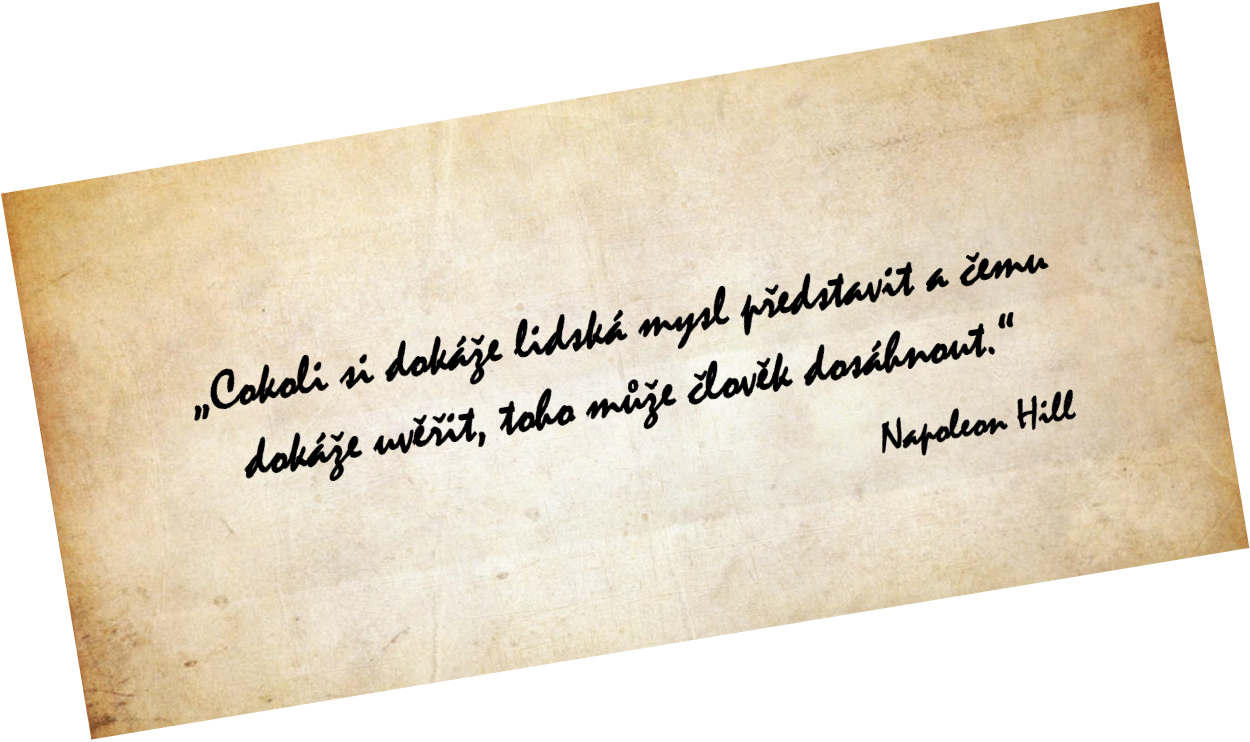 „Cokoli si dokáže lidská mysl představit a čemu
dokáže uvěřit, toho může člověk dosáhnout.“
Napoleon Hill